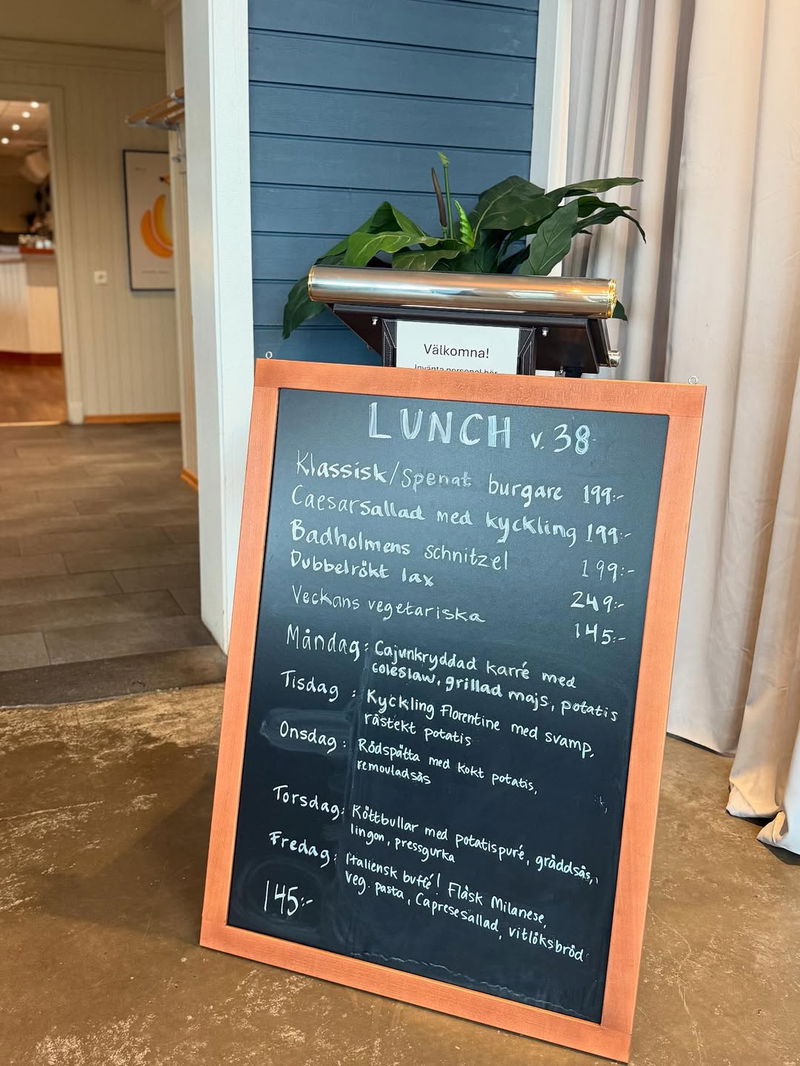 Välkomna!
Invänta personal här
LUNCH v. 38
Klassisk/Spenat burgare 199:-
Caesarsallad med kyckling 199:-
Badholmens schnitzel 199:-
Dubbelrökt lax 249:-
Veckans vegetariska 145:-
Måndag: Cajunkryddad karré med
coleslaw, grillad majs, potatis
Tisdag: Kyckling Florentine med svamp,
råstekt potatis
Onsdag: Rödspätta med kokt potatis,
remouladsås
Torsdag: Köttbullar med potatispuré, gräddsås,
lingon, pressgurka
Fredag: Italiensk buffé! Fläsk Milanese,
veg. pasta, Capresesallad, vitlöksbröd
145:-